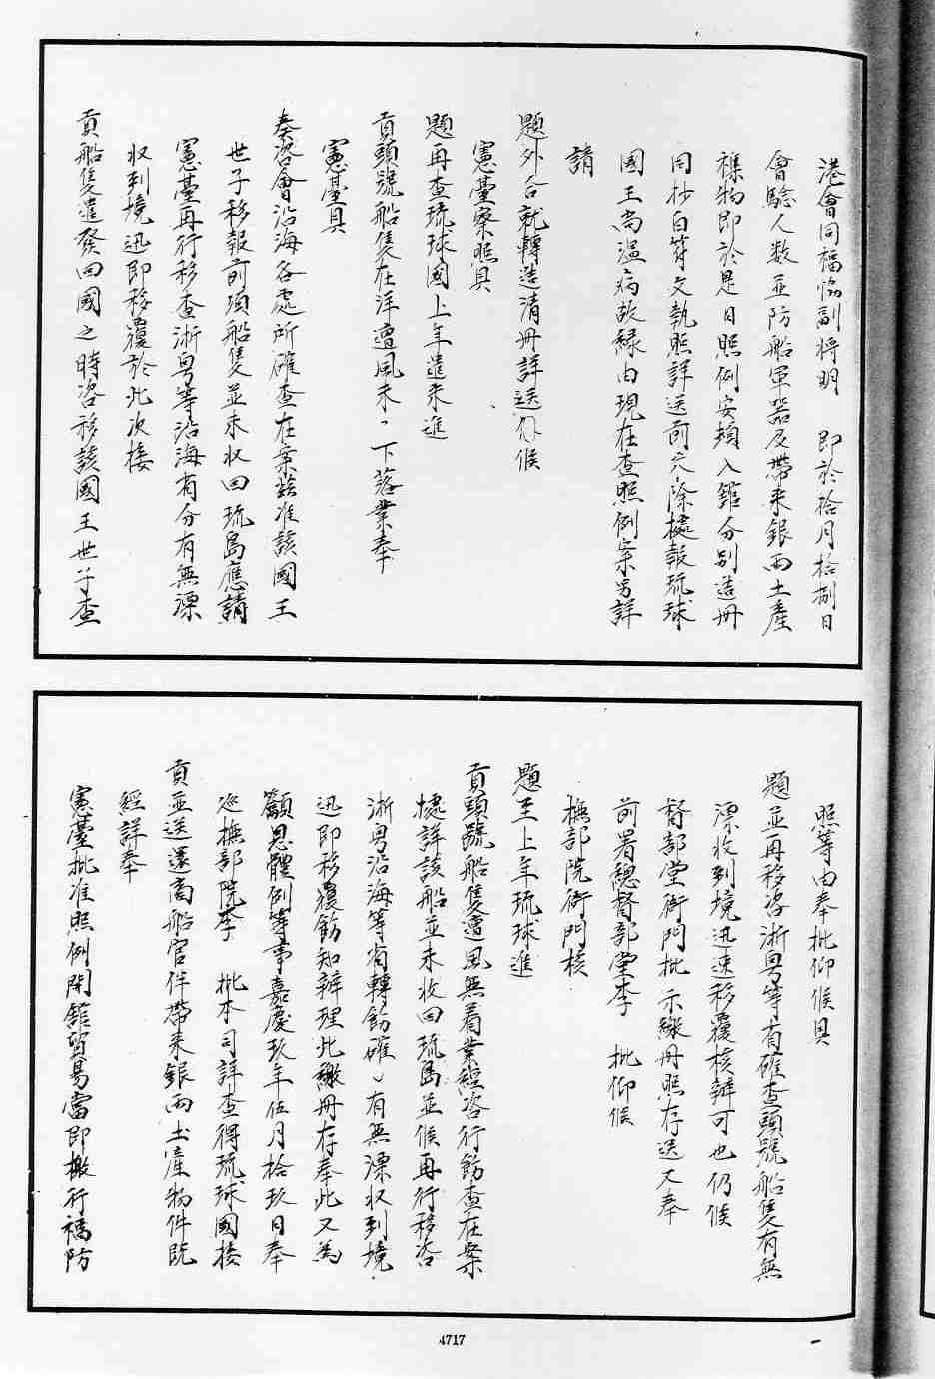 港會同福協副將明　即於拾月拾捌日
會驗人数並防船軍器及帶来銀両土產
襍物即於是日照例安頓入舘分別造冊
同抄白符文執照詳送前来除㨿報琉球
國王尚温病故縁由現在查照例案另詳
請
題外合就轉造清冊詳送伏候
憲臺察照具
題再查琉球國上年遣来進
貢頭號船隻在洋遭風未〻下落業奉
憲臺具
奏咨會沿海各處所確查在案兹准該國王
世子移報前項船隻並未収回琉島應請
憲臺再行移查浙粤等沿海省分有無漂
収到境迅即移覆於此次接
貢船隻遣發回國之時咨移該國王世子查
照等由奉批仰候具
題並再移咨浙粤等省確查頭號船隻有無
漂收到境迅速移覆核辨可也仍候
督部堂衙門批示繳冊照存送又奉
前署總督部堂李　批仰候
撫部院衙門核
題至上年琉球進
貢頭號船隻遭風無着業經咨行飭查在案
㨿詳該船並未收回琉島並候再行移咨
浙粤沿海等省轉飭確〻有無漂収到境
迅即移覆飭知辨理此繳冊存奉此又為
籲恩體例等事嘉慶玖年伍月拾玖日奉
巡撫部院李　批本司詳查得琉球國接
貢並送還商船官伴帶来銀両土産物件既
經詳奉
憲臺批准照例開舘貿易當即檄行福防
4717